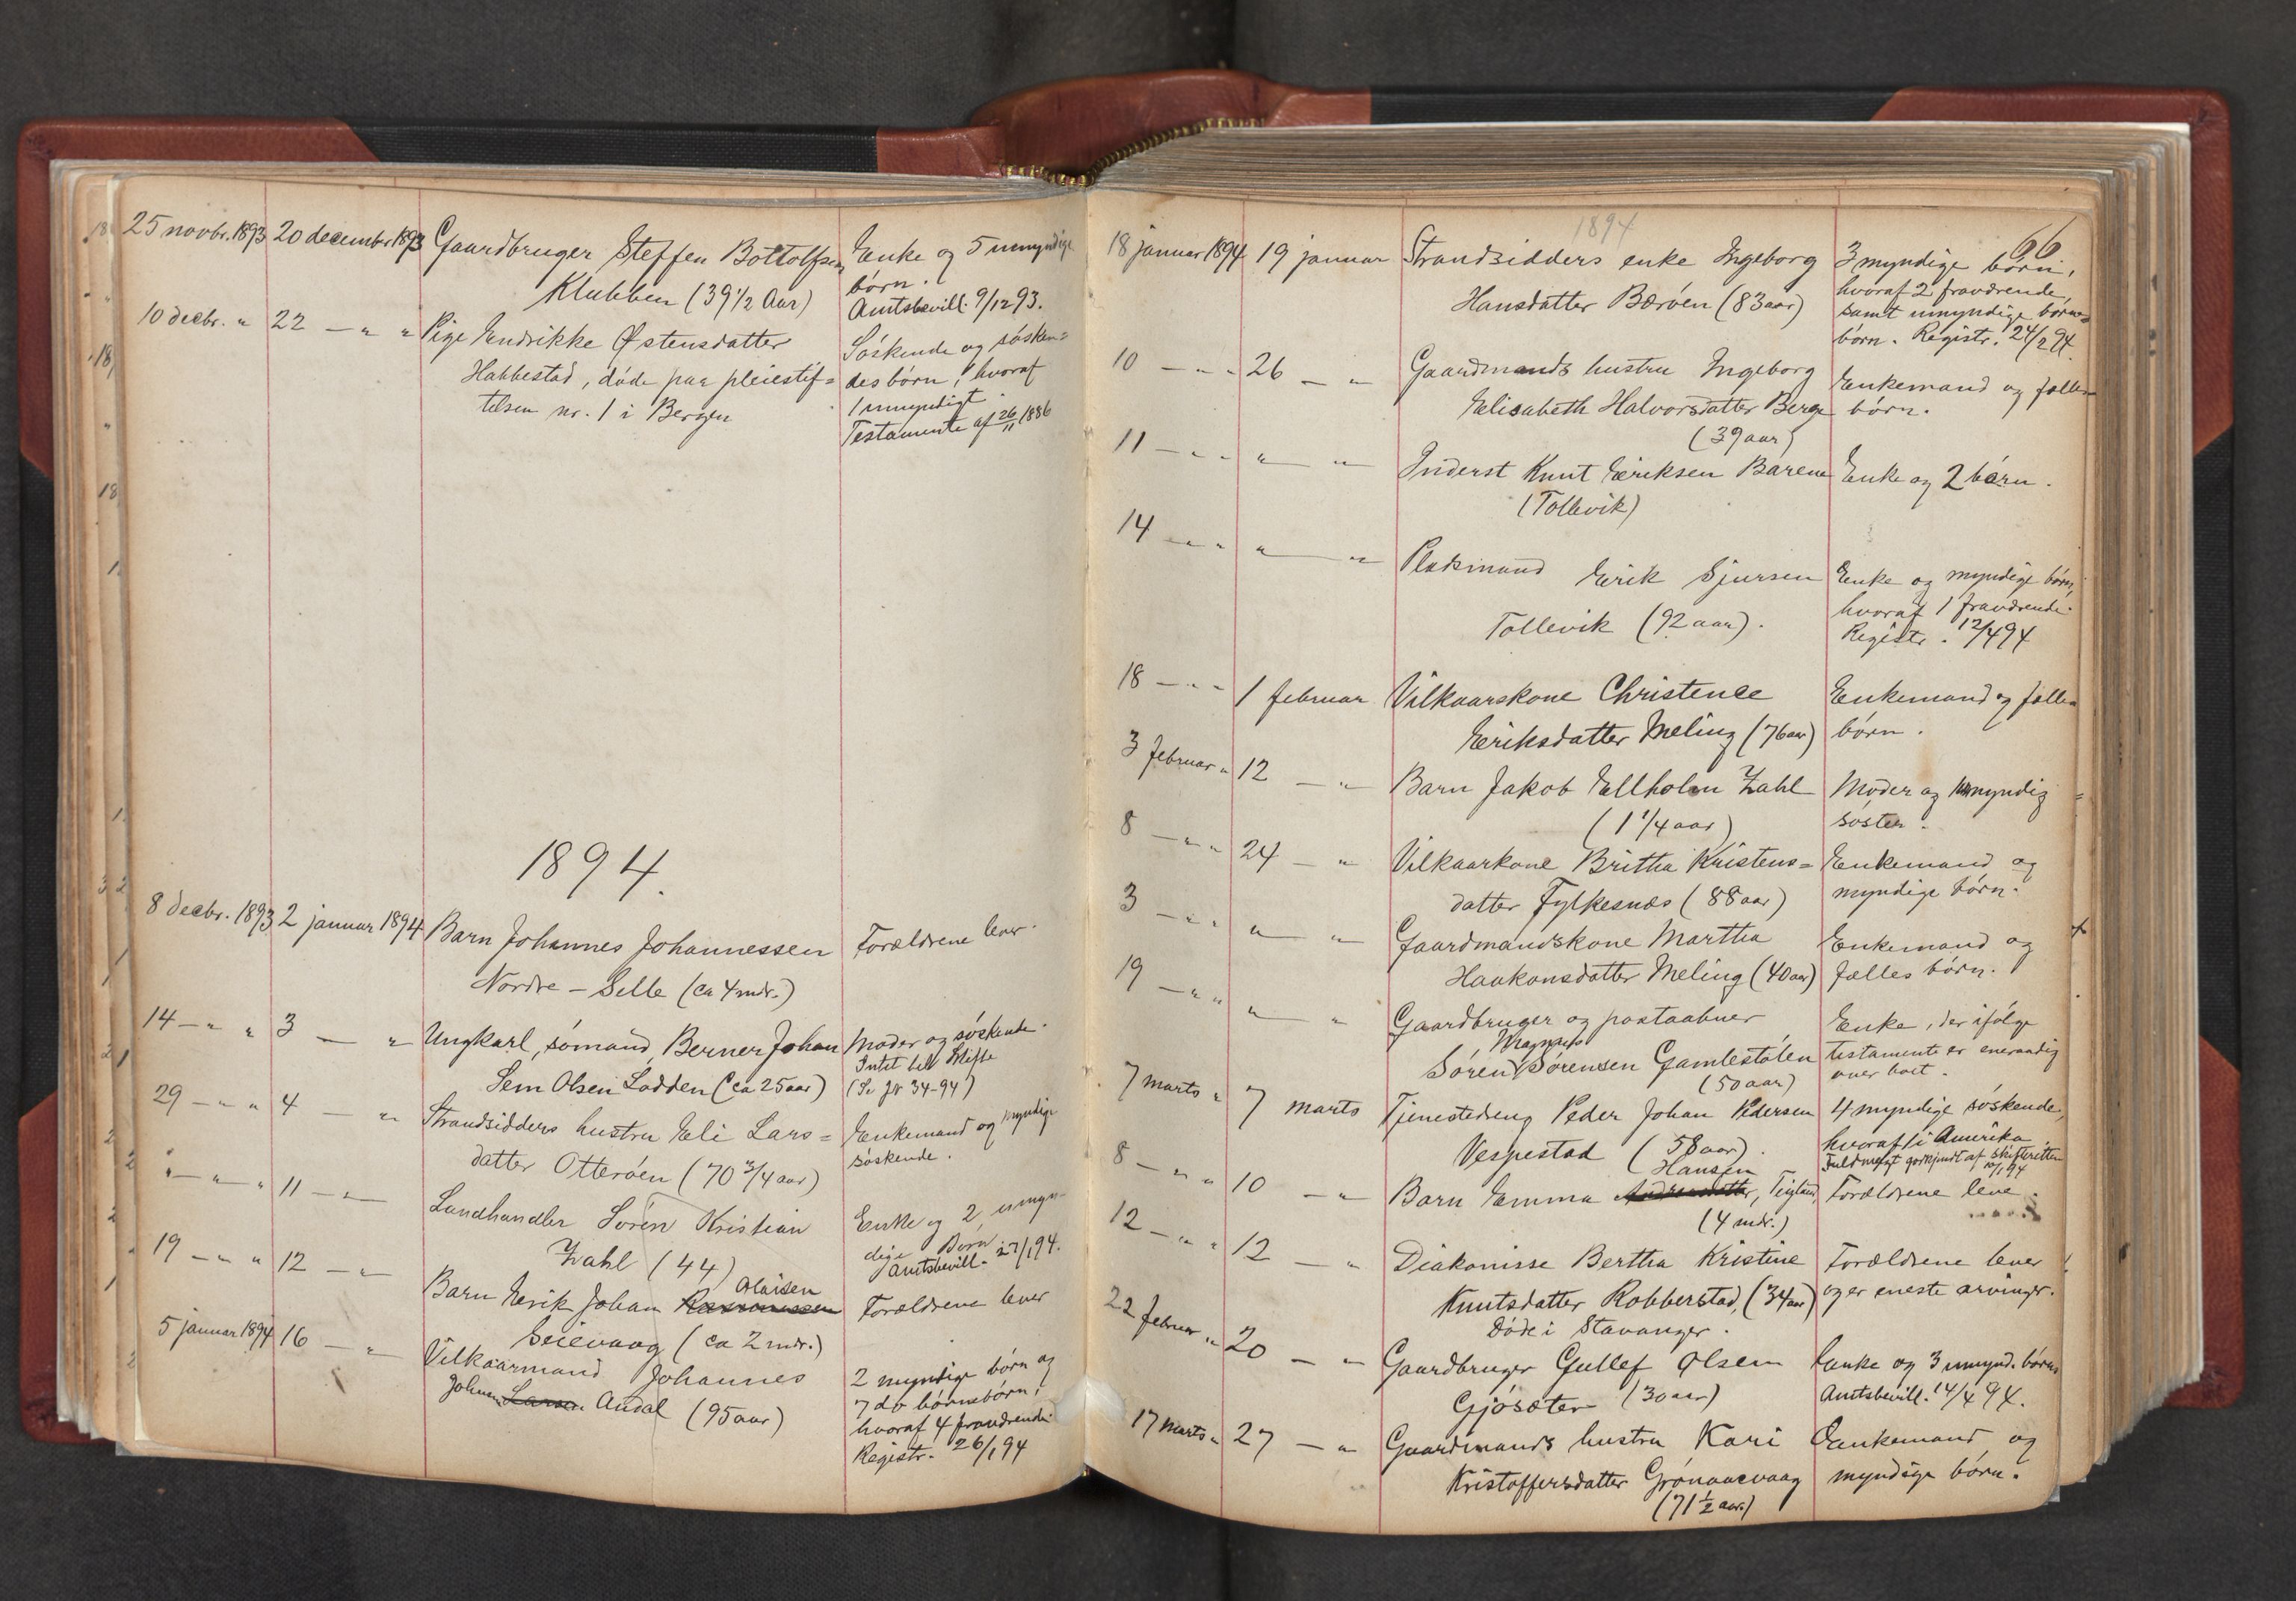 25 novbr. 1893 20 december 1893 Gaardbruger Steffen Bottolfsen Enke og 5 umyndige
Klubben (39 1/2 Aar) børn.
Amtsbevill. 9/12 93.
10 decbr. " 22 — " " Pige Endrikke Østensdatter Søskende og søsken=
Habbestad, døde paa pleiestif= des børn, hvoraf
telsen nr. 1 i Bergen 1 umyndigt.
Testamente af 26/11 1886
1894.
8 decbr. 1893 2 januar 1894 Barn Johannes Johannessen Forældrene lever.
Nordre - Selle (ca 4 mdr.)
14 — " " 3 — " Ungkarl, sømand, Berner Johan Moder og søskende.
Sem Olsen Lodden (ca 25 aar) Intet til Skifte
(Se Jr 34-94)
29 — " " 4 — " Strandsidders hustru Eli Lars= Enkemand og myndige
datter Otterøen (70 3/4 aar) søskende.
" — " " 11 — " Landhandler Søren Kristian Enke og 2 umyn-
Zahl (44) dige Børn.
Amtsbevill. 27/1 94.
19 — " " 12 — " Barn Erik Johan Rasmussen Olaisen Forældrene lever
Seievaag (ca 2 mdr.)
5 januar 1894 16 — " Vilkaarmand Johannes 2 myndige børn og
Johnsen Larsen Andal (95 aar) 7 do børnebørn,
hvoraf 4 fraværende
Registr. 26/1 94
1894
66
18 januar 1894 19 januar Strandsidders enke Ingeborg 3 myndige børn,
Hansdatter Bærøen (83 aar) hvoraf 2 fraværende,
samt umyndige børne=
børn. Registr. 24/2 94.
10 — " " 26 — " Gaardmands hustru Ingeborg Enkemand og fælles
Elisabeth Halvorsdatter Berge børn.
(39 aar)
11 — " " " — " Inderst Knut Eriksen Barene Enke og 2 børn.
(Tollevik)
14 — " " " — " Pladsmand Erik Sjursen Enke og myndige børn,
Tollevik (92 aar). hvoraf 1 fraværende.
Registr. 12/4 94
18 — " " 1 februar Vilkaarskone Christence Enkemand og fælles
Eriksdatter Meling (76 aar) børn.
3 februar " 12 — " Barn Jakob Ellholm Zahl Moder og umyndig
(1 1/4 aar) søster.
8 — " " 24 — " Vilkaarkone Britha Kristens= Enkemand og
datter Fylkesnæs (88 aar) myndige børn.
3 — " " " — " Gaardmandskone Martha Enkemand og
Haakonsdatter Meling (40 aar) fælles børn.
19 — " " " — " Gaardbruger og postaabner Enke, der ifølge
Søren Magnus Sørensen Gamlestølen testamente er eneraadig
(50 aar) over boet.
7 marts " 7 marts Tjenestedreng Peder Johan Pedersen 4 myndige søskende,
Vespestad (58 aar). hvoraf 1 i Amerika
Fuldmagt godkjendt af Skifteretten
8 — " " 10 — " Barn Emma Hansen Andersdatter, Teigland, Forældrene leve.
(4 mdr.)
12 — " " 12 — " Diakonisse Bertha Kristine Forældrene lever
Knutsdatter Robberstad, (34 aar) og er eneste arvinger.
Døde i Stavanger.
22 februar " 20 — " Gaardbruger Gullef Olsen Enke og 3 umynd. børn
Gjøsæter (30 aar) Amtsbevill. 14/4 94.
17 marts " 27 — " Gaardmands hustru Kari Enkemand og
Kristoffersdatter Grønaasvaag myndige børn.
(71 1/2 aar)